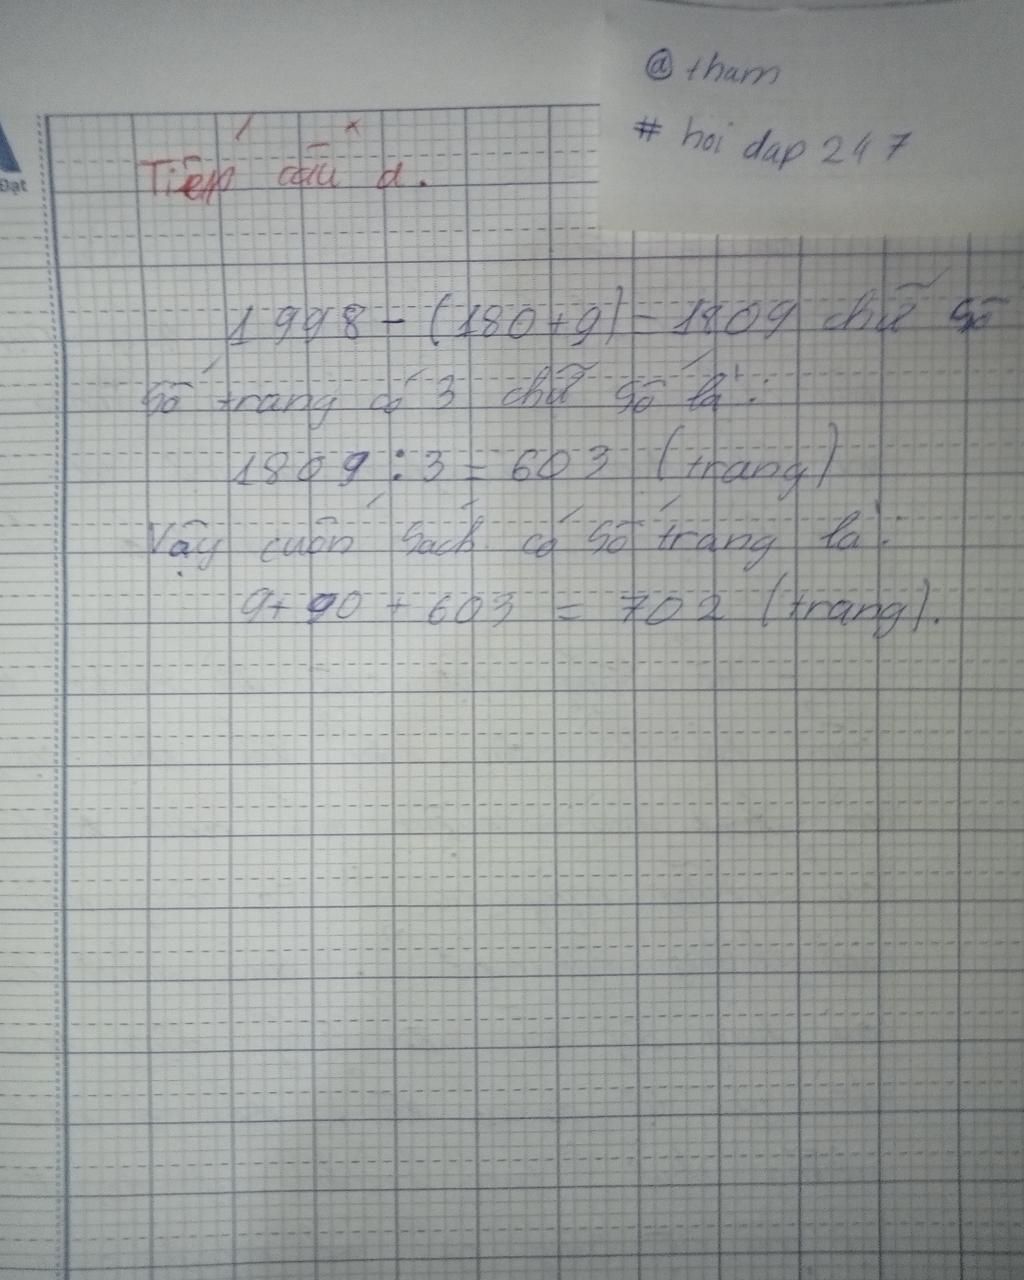 @ tham
# hoi dap 247
Đạt
Tiếp câu d.
1998 - (180 + 9) = 1809 chữ số
Số trang có 3 chữ số là:
1809 : 3 = 603 (trang)
Vậy cuốn sách có số trang là:
9 + 90 + 603 = 702 (trang).